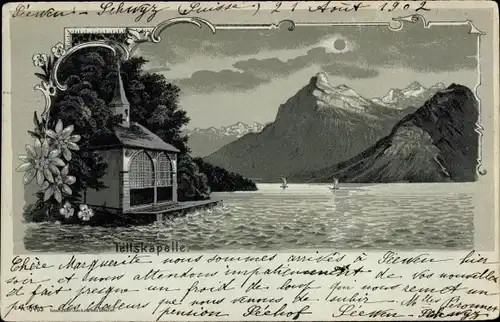 Seewen - Schwyz (Suisse) 21 Août 1902
Tellskapelle
Chère Marguerite nous sommes arrivés à Seewen hier
soir et nous attendons impatiemment de vos nouvelles
et fait presque un froid de loup qui nous remet un
peu des chaleurs que nous venons de subir. Mlle
pension Seehof Seewen - Schwyz